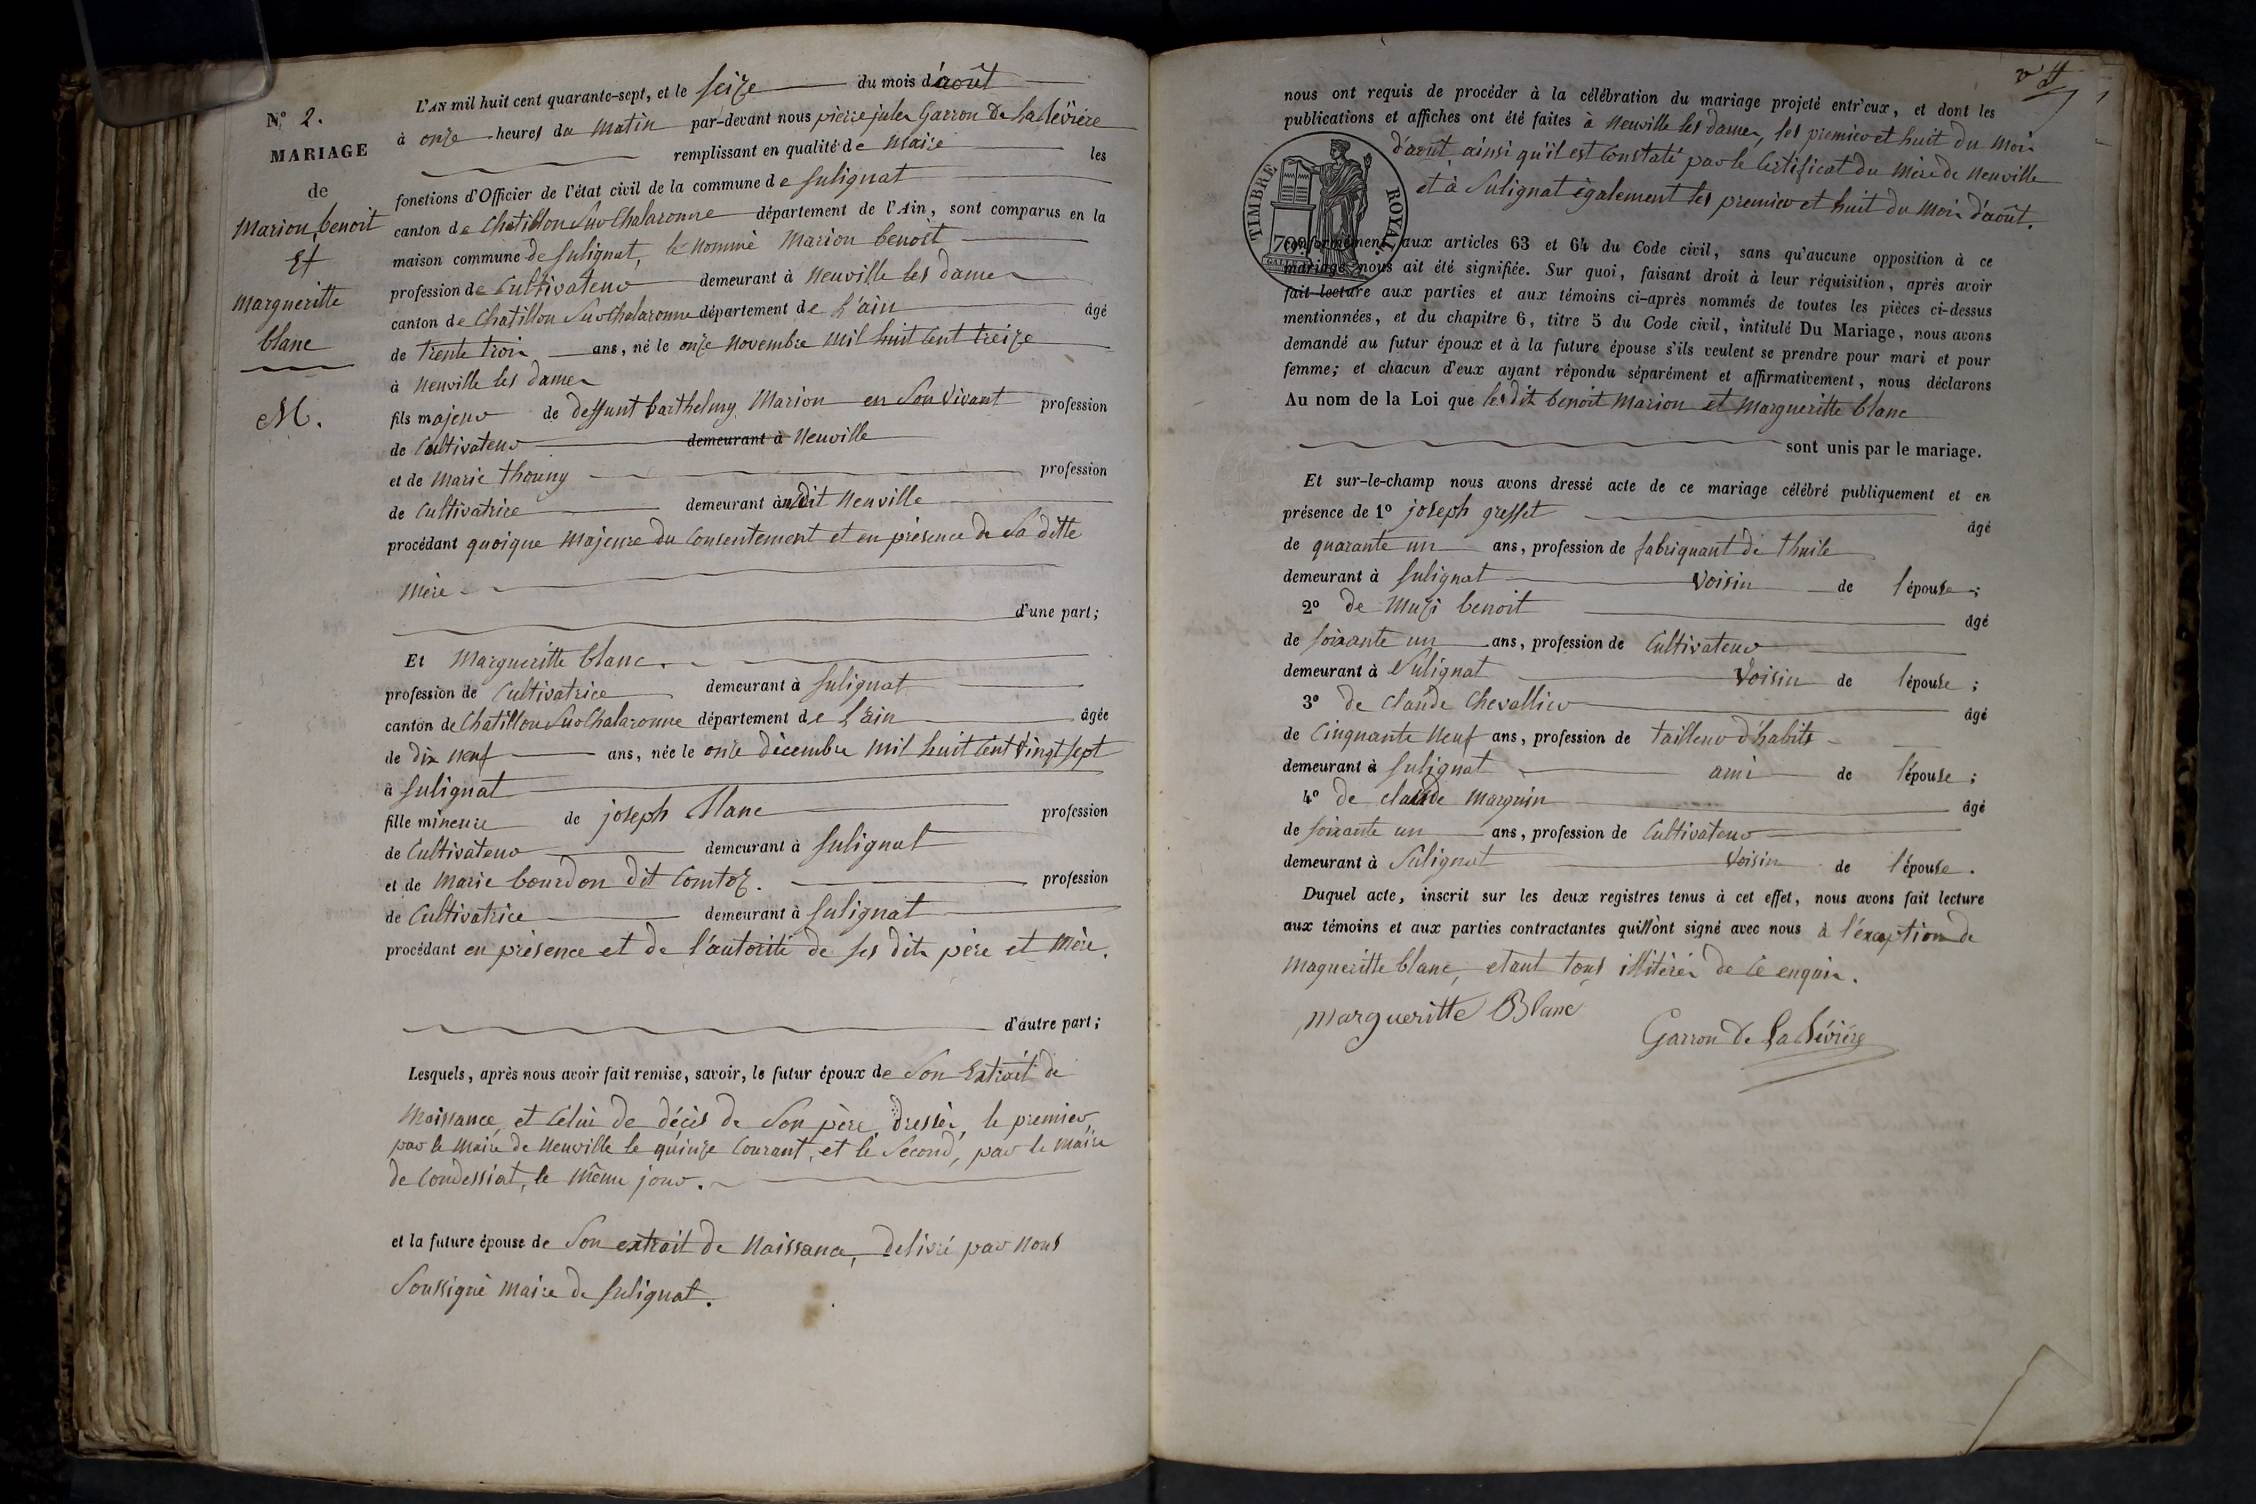 N° 2.
MARIAGE
de
Marion benoit
Et
Margueritte
blanc
M.
L'AN mil huit cent quarante-sept, et le seize du mois d'août
à onze heures du matin par-devant nous pierre jules Garron De La Bévière
remplissant en qualité de maire les
fonctions d'Officier de l'état civil de la commune de Sulignat
canton de Chatillon Sur Chalaronne département de l'Ain, sont comparus en la
maison commune de Sulignat, le nommé Marion benoit
profession de Cultivateur demeurant à Neuville les dames
canton de Chatillon Sur Chalaronne département de L'ain âgé
de trente trois ans, né le onze novembre mil huit cent treize
à Neuville les dames
fils majeur de deffunt barthelmy Marion en Son vivant profession
de Cultivateur demeurant à Neuville
et de Marie thouny profession
de Cultivatrice demeurant audit Neuville
procédant quoique Majeure du Consentement et en présence de Sa ditte
Mère
d'une part;
Et Margueritte blanc.
profession de Cultivatrice demeurant à Sulignat
canton de Chatillon Sur Chalaronne département de L'ain âgée
de dix neuf ans, née le onze décembre mil huit cent vingt sept
à Sulignat
fille mineure de joseph Blanc profession
de Cultivateur demeurant à Sulignat
et de Marie bourdon dit Comtoz. profession
de Cultivatrice demeurant à Sulignat
procédant en présence et de l'autorité de ses dits père et mère.
d'autre part;
Lesquels, après nous avoir fait remise, savoir, le futur époux de Son Extrait de
Naissance, et Celui de décès de Son père, Dressés, le premier,
par le maire de Neuville le quinze Courant, et le Second, par le maire
de Condessiat, le même jour.
et la future épouse de Son extrait de Naissance, delivré par nous
Soussigné maire de Sulignat.
nous ont requis de procéder à la célébration du mariage projeté entr'eux, et dont les
publications et affiches ont été faites à Neuville les dames, les premier et huit du mois
d'août, ainsi qu'il est Constaté par le Certificat du Mère de Neuville
et à Sulignat également les premier et huit du mois d'août.
TIMBRE ROYAL
conformément aux articles 63 et 64 du Code civil, sans qu'aucune opposition à ce
mariage nous ait été signifiée. Sur quoi, faisant droit à leur réquisition, après avoir
fait lecture aux parties et aux témoins ci-après nommés de toutes les pièces ci-dessus
mentionnées, et du chapitre 6, titre 5 du Code civil, intitulé Du Mariage, nous avons
demandé au futur époux et à la future épouse s'ils veulent se prendre pour mari et pour
femme; et chacun d'eux ayant répondu séparément et affirmativement, nous déclarons
Au nom de la Loi que les dits benoit Marion et Margueritte blanc
sont unis par le mariage.
Et sur-le-champ nous avons dressé acte de ce mariage célébré publiquement et en
présence de 1° joseph greffet âgé
de quarante un ans, profession de fabriquant de thuile
demeurant à Sulignat Voisin de l'épouse;
2° de Muzi benoit âgé
de soixante un ans, profession de Cultivateur
demeurant à Sulignat Voisin de l'épouse;
3° de Claude Chevallier âgé
de Cinquante Neuf ans, profession de tailleur d'habits
demeurant à Sulignat ami de l'épouse;
4° de claude Marguin âgé
de soixante un ans, profession de Cultivateur
demeurant à Sulignat Voisin de l'épouse.
Duquel acte, inscrit sur les deux registres tenus à cet effet, nous avons fait lecture
aux témoins et aux parties contractantes qui l'ont signé avec nous à l'éxception de
Magueritte blanc, etant tous illitérés de ce enquis.
Margueritte Blanc
Garron De La Bévière